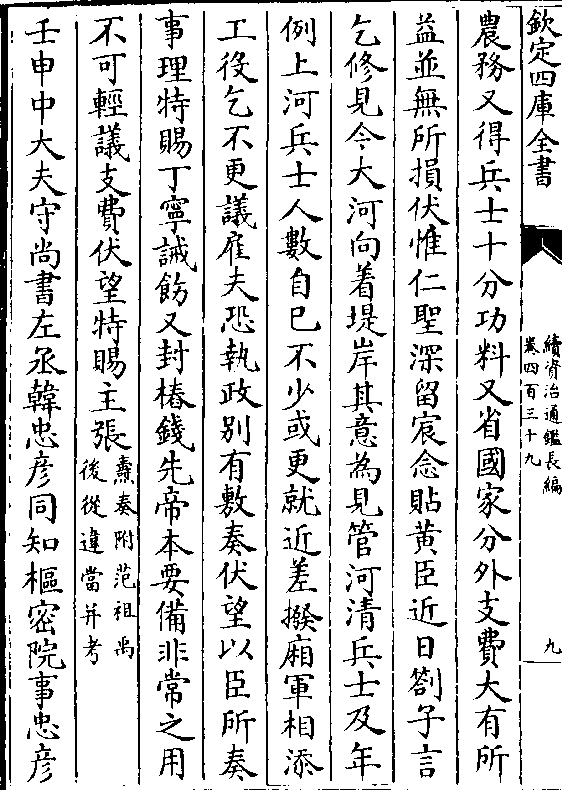 欽定四庫全書
續資治通鑑長編
卷四百三十九
九
農務又得兵士十分功料又省國家分外支費大有所
益並無所損伏惟仁聖深留宸念貼黄臣近日劄子言
乞修見今大河向着堤岸其意為見管河清兵士及年
例上河兵士人數自已不少或更就近差撥廂軍相添
工役乞不更議雇夫恐執政别有敷奏伏望以臣所奏
事理特賜丁寧誡飭又封樁錢先帝本要備非常之用
不可輕議支費伏望特賜主張
燾奏附范祖禹
後從違當并考
壬申中大夫守尚書左丞韓忠彦同知樞密院事忠彦